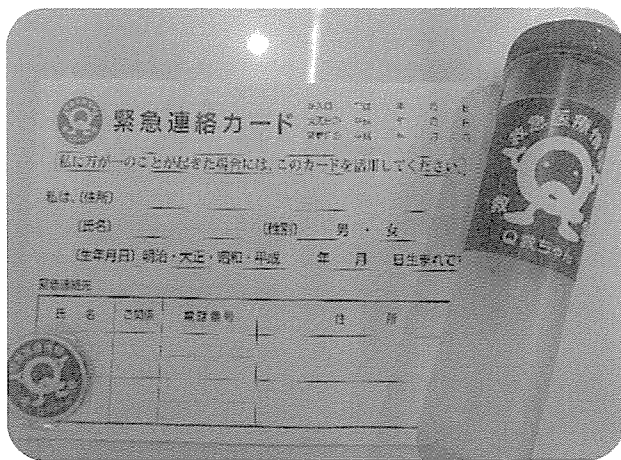 緊急連絡カード
年 月 日
年 月 日
年 月 日
私に万が一のことが起きた場合には、このカードを活用してください。
私は、(住所)
(氏名) (性別) 男 ・ 女
(生年月日) 明治・大正・昭和・平成 年 月 日生まれで
緊急連絡先
氏 名 ご関係 電話番号 住 所
緊急医療情
Q